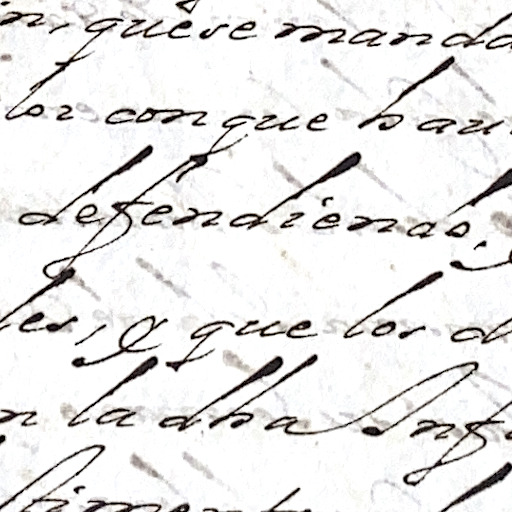 n, quêse manda
los conque hau
defendienas,
les, y que los d
n la dha Inf
timento